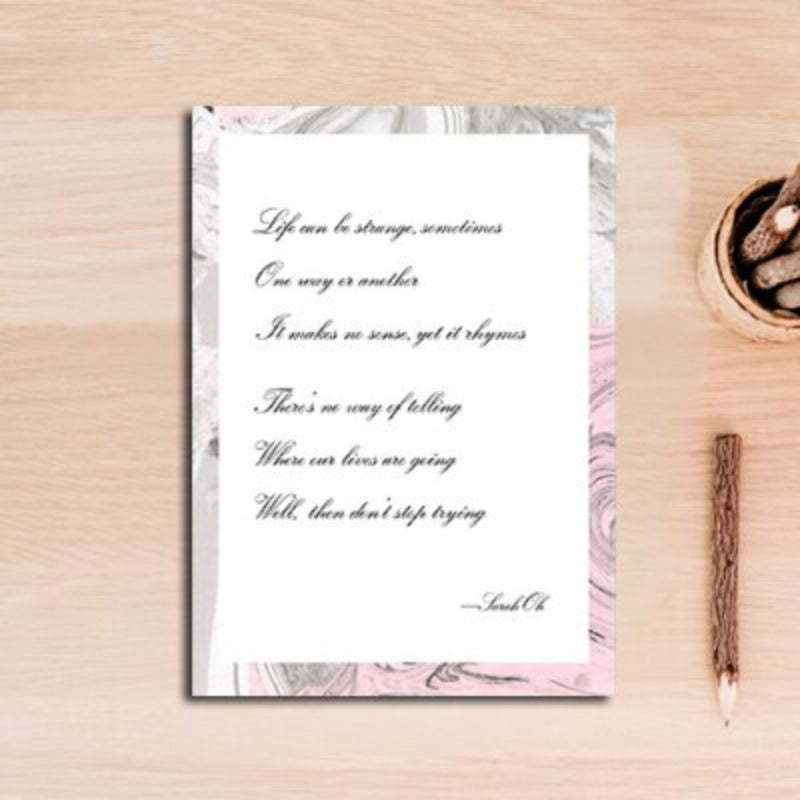 Life can be strange, sometimes
One way or another
It makes no sense, yet it rhymes
There's no way of telling
Where our lives are going
Well, then don't stop trying
—Sarah Oh